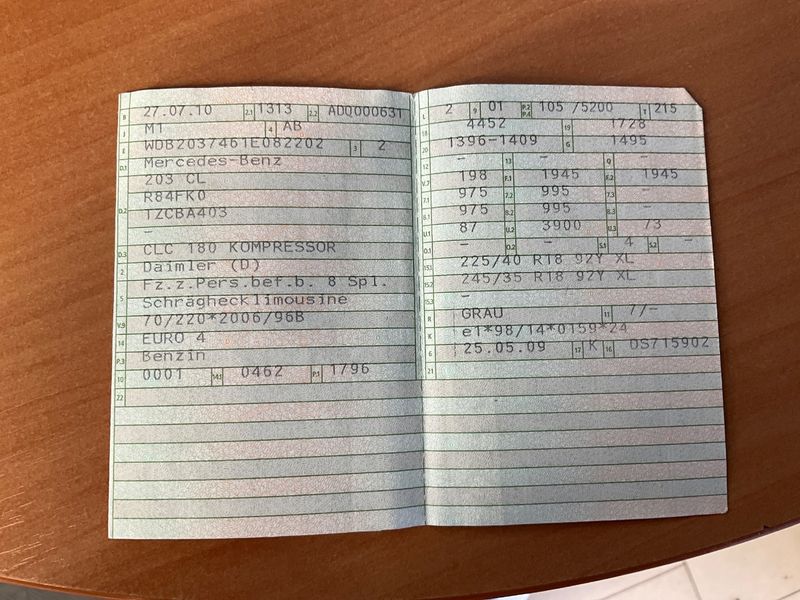 B 27.07.10 2.1 1313 2.2 ADQ000631
J M1 4 AB
E WDB2037461E082202 3 2
D.1 Mercedes-Benz
203 CL
D.2 R84FK0
1ZCBA403
–
D.3 CLC 180 KOMPRESSOR
2 Daimler (D)
5 Fz.z.Pers.bef.b. 8 Spl.
Schräghecklimousine
V.9 70/220*2006/96B
14 EURO 4
P.3 Benzin
10 0001 14.1 0462 P.1 1796
22
L 2 9 01 P.2 P.4 105 /5200 T 215
18 4452 19 1728
20 1396-1409 G 1495
12 – 13 – Q –
V.7 198 F.1 1945 F.2 1945
7.1 975 7.2 995 7.3 –
8.1 975 8.2 995 8.3 –
U.1 87 U.2 3900 U.3 73
O.1 – O.2 – S.1 4 S.2 –
15.1 225/40 R18 92Y XL
15.2 245/35 R18 92Y XL
15.3 –
R GRAU 11 7/–
K e1*98/14*0159*24
6 25.05.09 17 K 16 DS715902
21